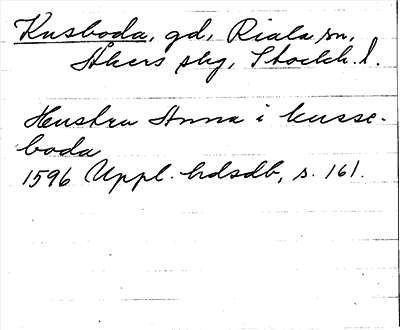 Kusboda, gd, Riala sn,
Åkers skg, Stockh. l.
Hustru Anna i kusse-
boda
1596 Uppl. hdsdb, s. 161.